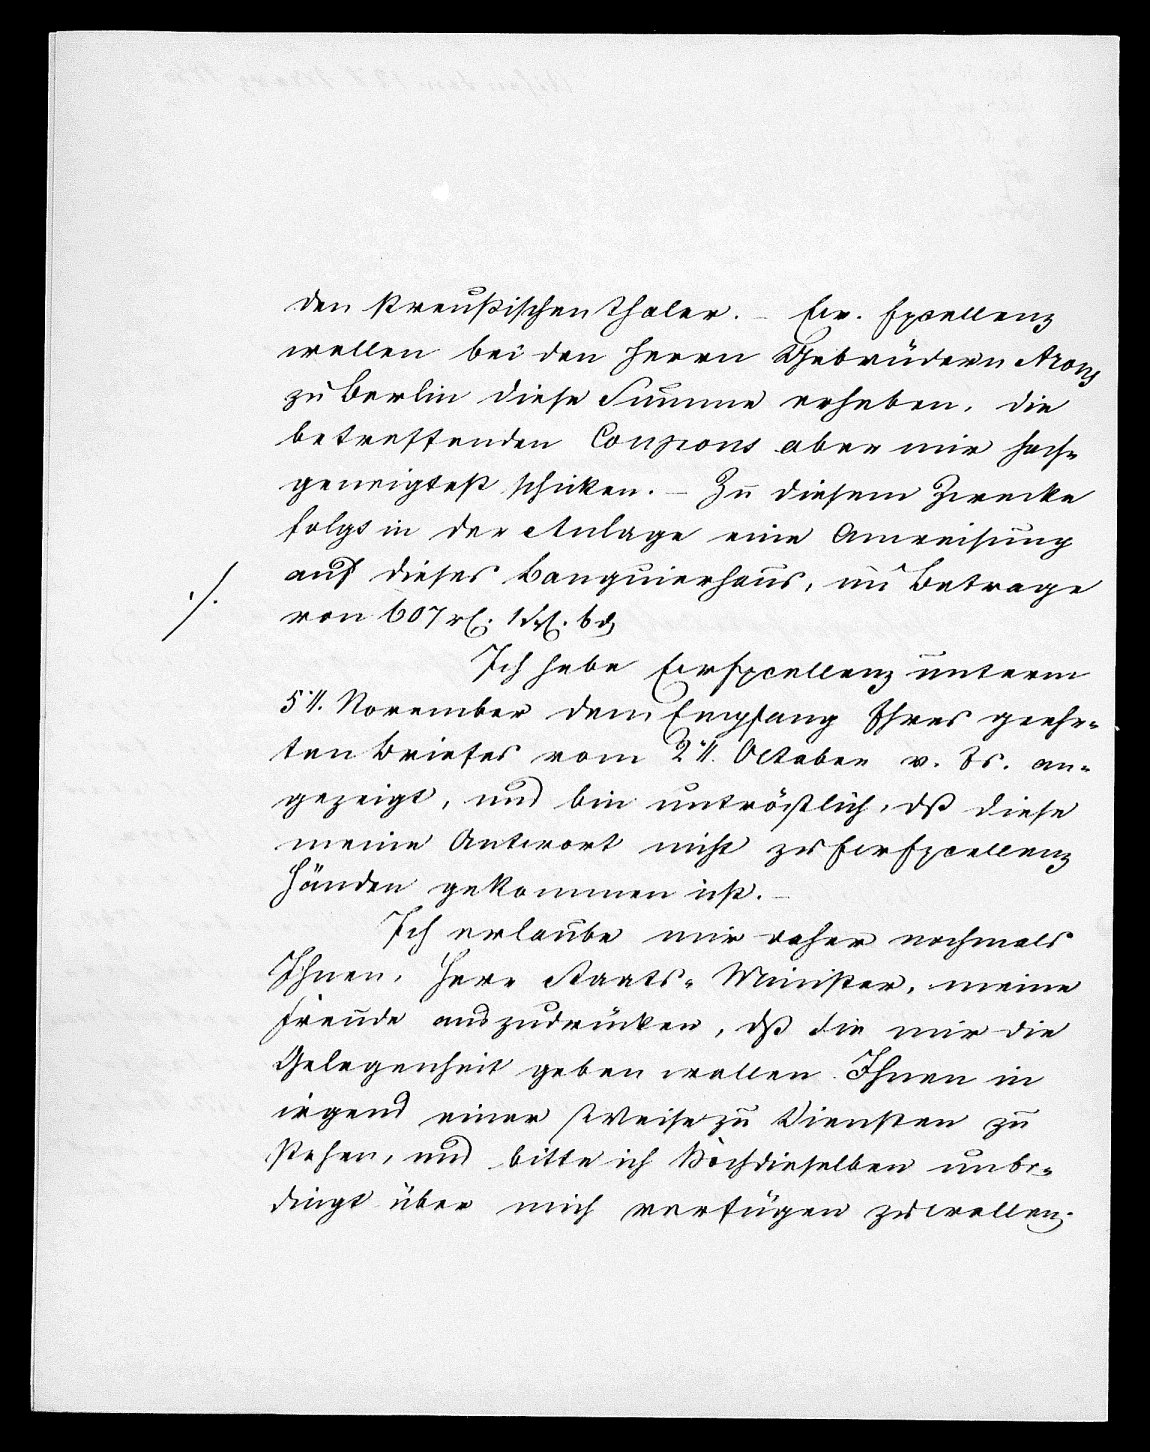 den Preußischen Thaler. – Ew. Excellenz
wollen bei den Herrn Gebrüdern Arons
zu Berlin diese Summe erheben, die
betreffenden Coupons aber mir hoch-
geneigtest schicken. – Zu diesem Zwecke
folgt in der Anlage eine Anweisung
./. auf dieses Banquierhaus, im Betrage
von 607 rℓ. 6 d
Ich habe Ew Excellenz unterm
5t. November dem Empfang Ihres geehr-
ten Briefes vom 2t. October v. Js. an-
gezeigt, und bin untröstlich, dß diese
meine Antwort nicht zu Ew Excellenz
Händen gekommen ist. –
Ich erlaube mir daher nochmals
Ihnen, Herr Staats-Minister, meine
Freude auszudrücken, dß Sie mir die
Gelegenheit geben wollen Ihnen in
irgend einer Weise zu Diensten zu
stehen, und bitte ich Hochdieselben unbe-
dingt über mich verfügen zu wollen.